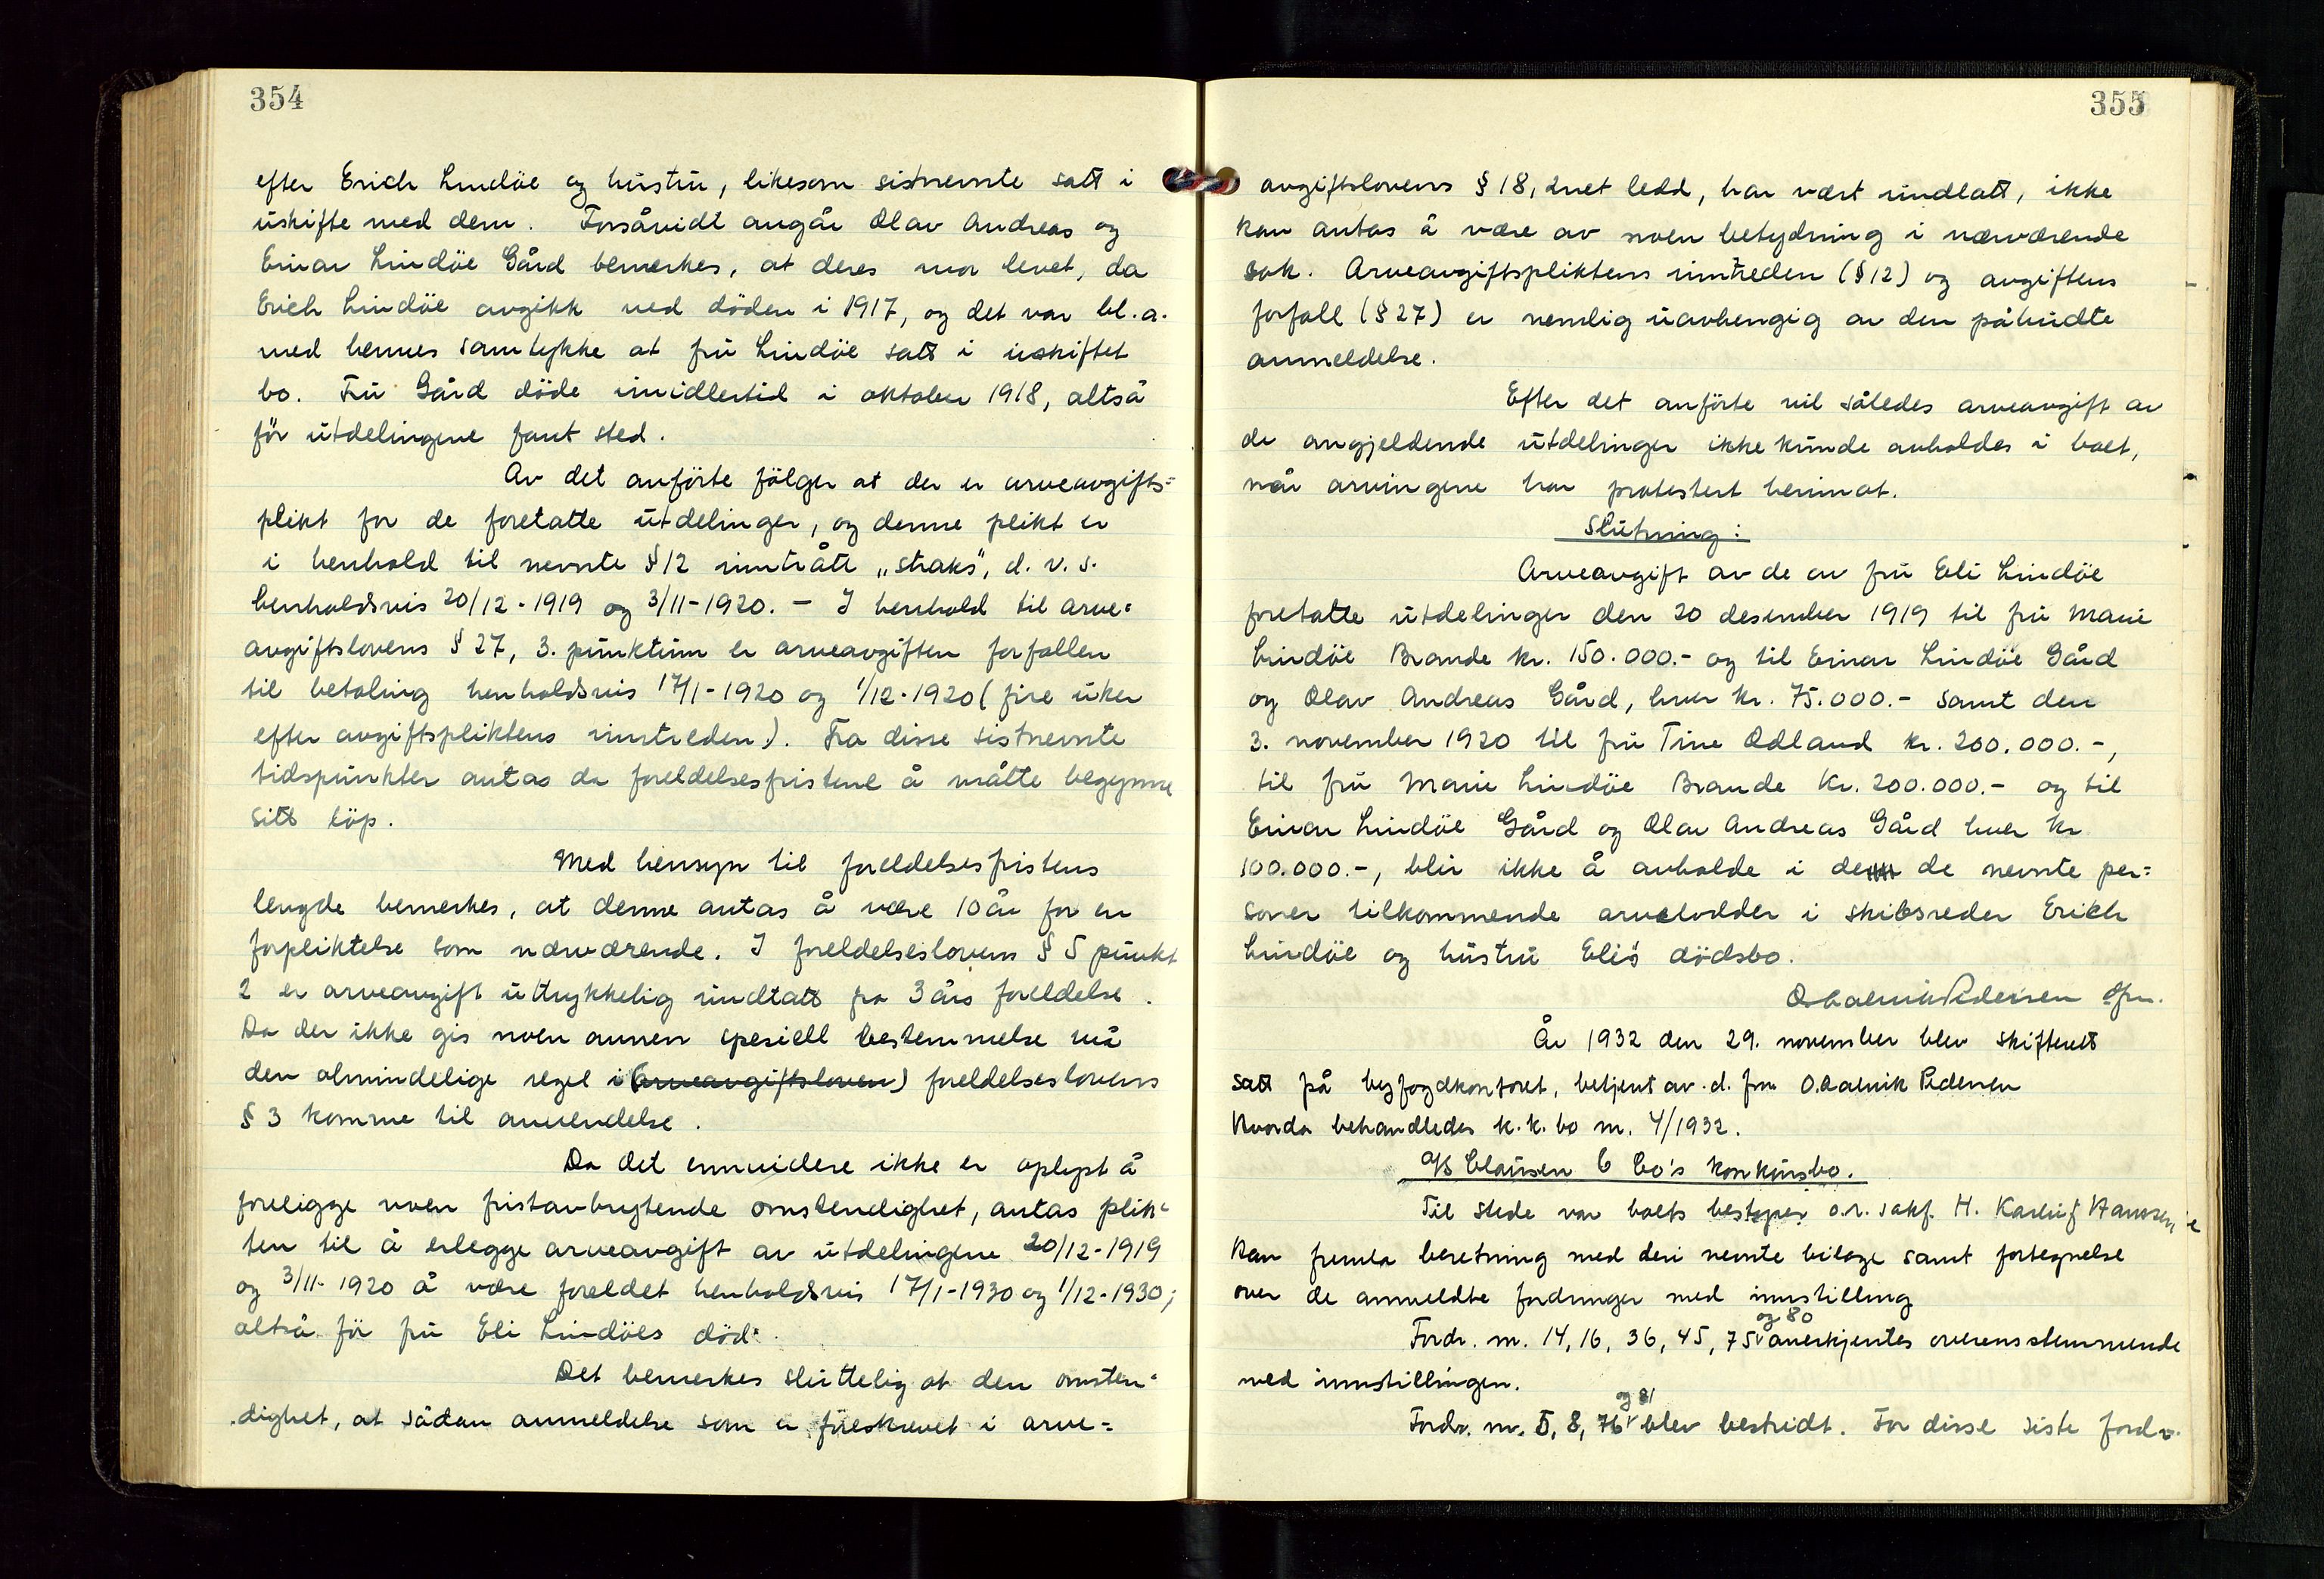 354
efter Erich Lindöe og hustru, likesom sistnevnte satt i
uskifte med dem. Forsåvidt angår Olav Andreas og
Einar Lindöe Gård bemerkes, at deres mor levet, da
Erich Lindöe avgikk ved döden i 1917, og det var bl.a.
med hennes samtykke at fru Lindöe satt i uskiftet
bo. Fru Gård döde imidlertid i oktober 1918, altså
för utdelingene fant sted.
Av det anförte fölger at der er arveavgifts=
plikt for de foretatte utdelinger, og denne plikt er
i henhold til nevnte § 12 inntrått „straks", d.v.s.
henholdsvis 20/12-1919 og 3/11-1920. - I henhold til arve=
avgiftslovens § 27, 3. punktum er arveavgiften forfallen
til betaling henholdsvis 17/1-1920 og 1/12-1920 (fire uker
efter avgiftspliktens inntreden). Fra disse sistnevnte
tidspunkter antas da foreldelsesfristene å måtte begynne
sitt löp.
Med hensyn til foreldelsesfristens
lengde bemerkes, at denne antas å være 10 år for en
forpliktelse som nærværende. I foreldelseslovens § 5 punkt
2 er arveavgift uttrykkelig undtatt fra 3 års foreldelse.
Da der ikke gis noen annen spesiell bestemmelse må
den almindelige regel i (arveavgiftsloven) foreldelseslovens
§ 3 komme til anvendelse.
Da det ennvidere ikke er oplyst å
foreligge noen fristavbrytende omstendighet, antas plik=
ten til å erlegge arveavgift av utdelingene 20/12-1919
og 3/11-1920 å være foreldet henholdsvis 17/1-1930 og 1/12-1930,
altså för fru Eli Lindöes död.
Det bemerkes sluttelig at den omsten=
dighet, at sådan anmeldelse som er föreskrevet i arve=
355
avgiftslovens § 18, 2net ledd, har vært undlatt, ikke
kan antas å være av noen betydning i nærværende
sak. Arveavgiftspliktens inntreden (§ 12) og avgiftens
forfall (§ 27) er nemlig uavhengig av den påbudte
anmeldelse.
Efter det anförte vil således arveavgift av
de angjeldende utdelinger ikke kunde avholdes i boet,
når arvingene har protestert herimot.
Slutning:
Arveavgift av de av fru Eli Lindöe
foretatte utdelinger den 20 desember 1919 til fru Marie
Lindöe Brande kr. 150.000.- og til Einar Lindöe Gård
og Olav Andreas Gård, hver kr. 75.000.- samt den
3. november 1920 til fru Tine Odland kr. 200.000.-,
til fru Marie Lindöe Brande kr. 200.000.- og til
Einar Lindöe Gård og Olav Andreas Gård hver kr
100.000.-, blir ikke å avholde i de de nevnte per=
soner tilkommende arvelodder i skibsreder Erich
Lindöe og hustru Elis dödsbo.
Pedersen
År 1932 den 29. november blev skifterett
satt på byfogdkontoret, betjent av d. fm. O. Pedersen
Hvorda behandledes k.k. bo nr. 4/1932.
A/S Clausen & Co's konkursbo.
Til stede var boets bestyrer o.r. sakf. H. Hanssen
Han fremla beretning med deri nevnte bilage samt fortegnelse
over de anmeldte fordringer med innstilling
Fordr. nr. 14, 16, 36, 45, 75 og 80 anerkjentes overensstemmende
med innstillingen.
Fordr. nr. 5, 8, 76 og 81 blev bestridt. For disse siste fordr.